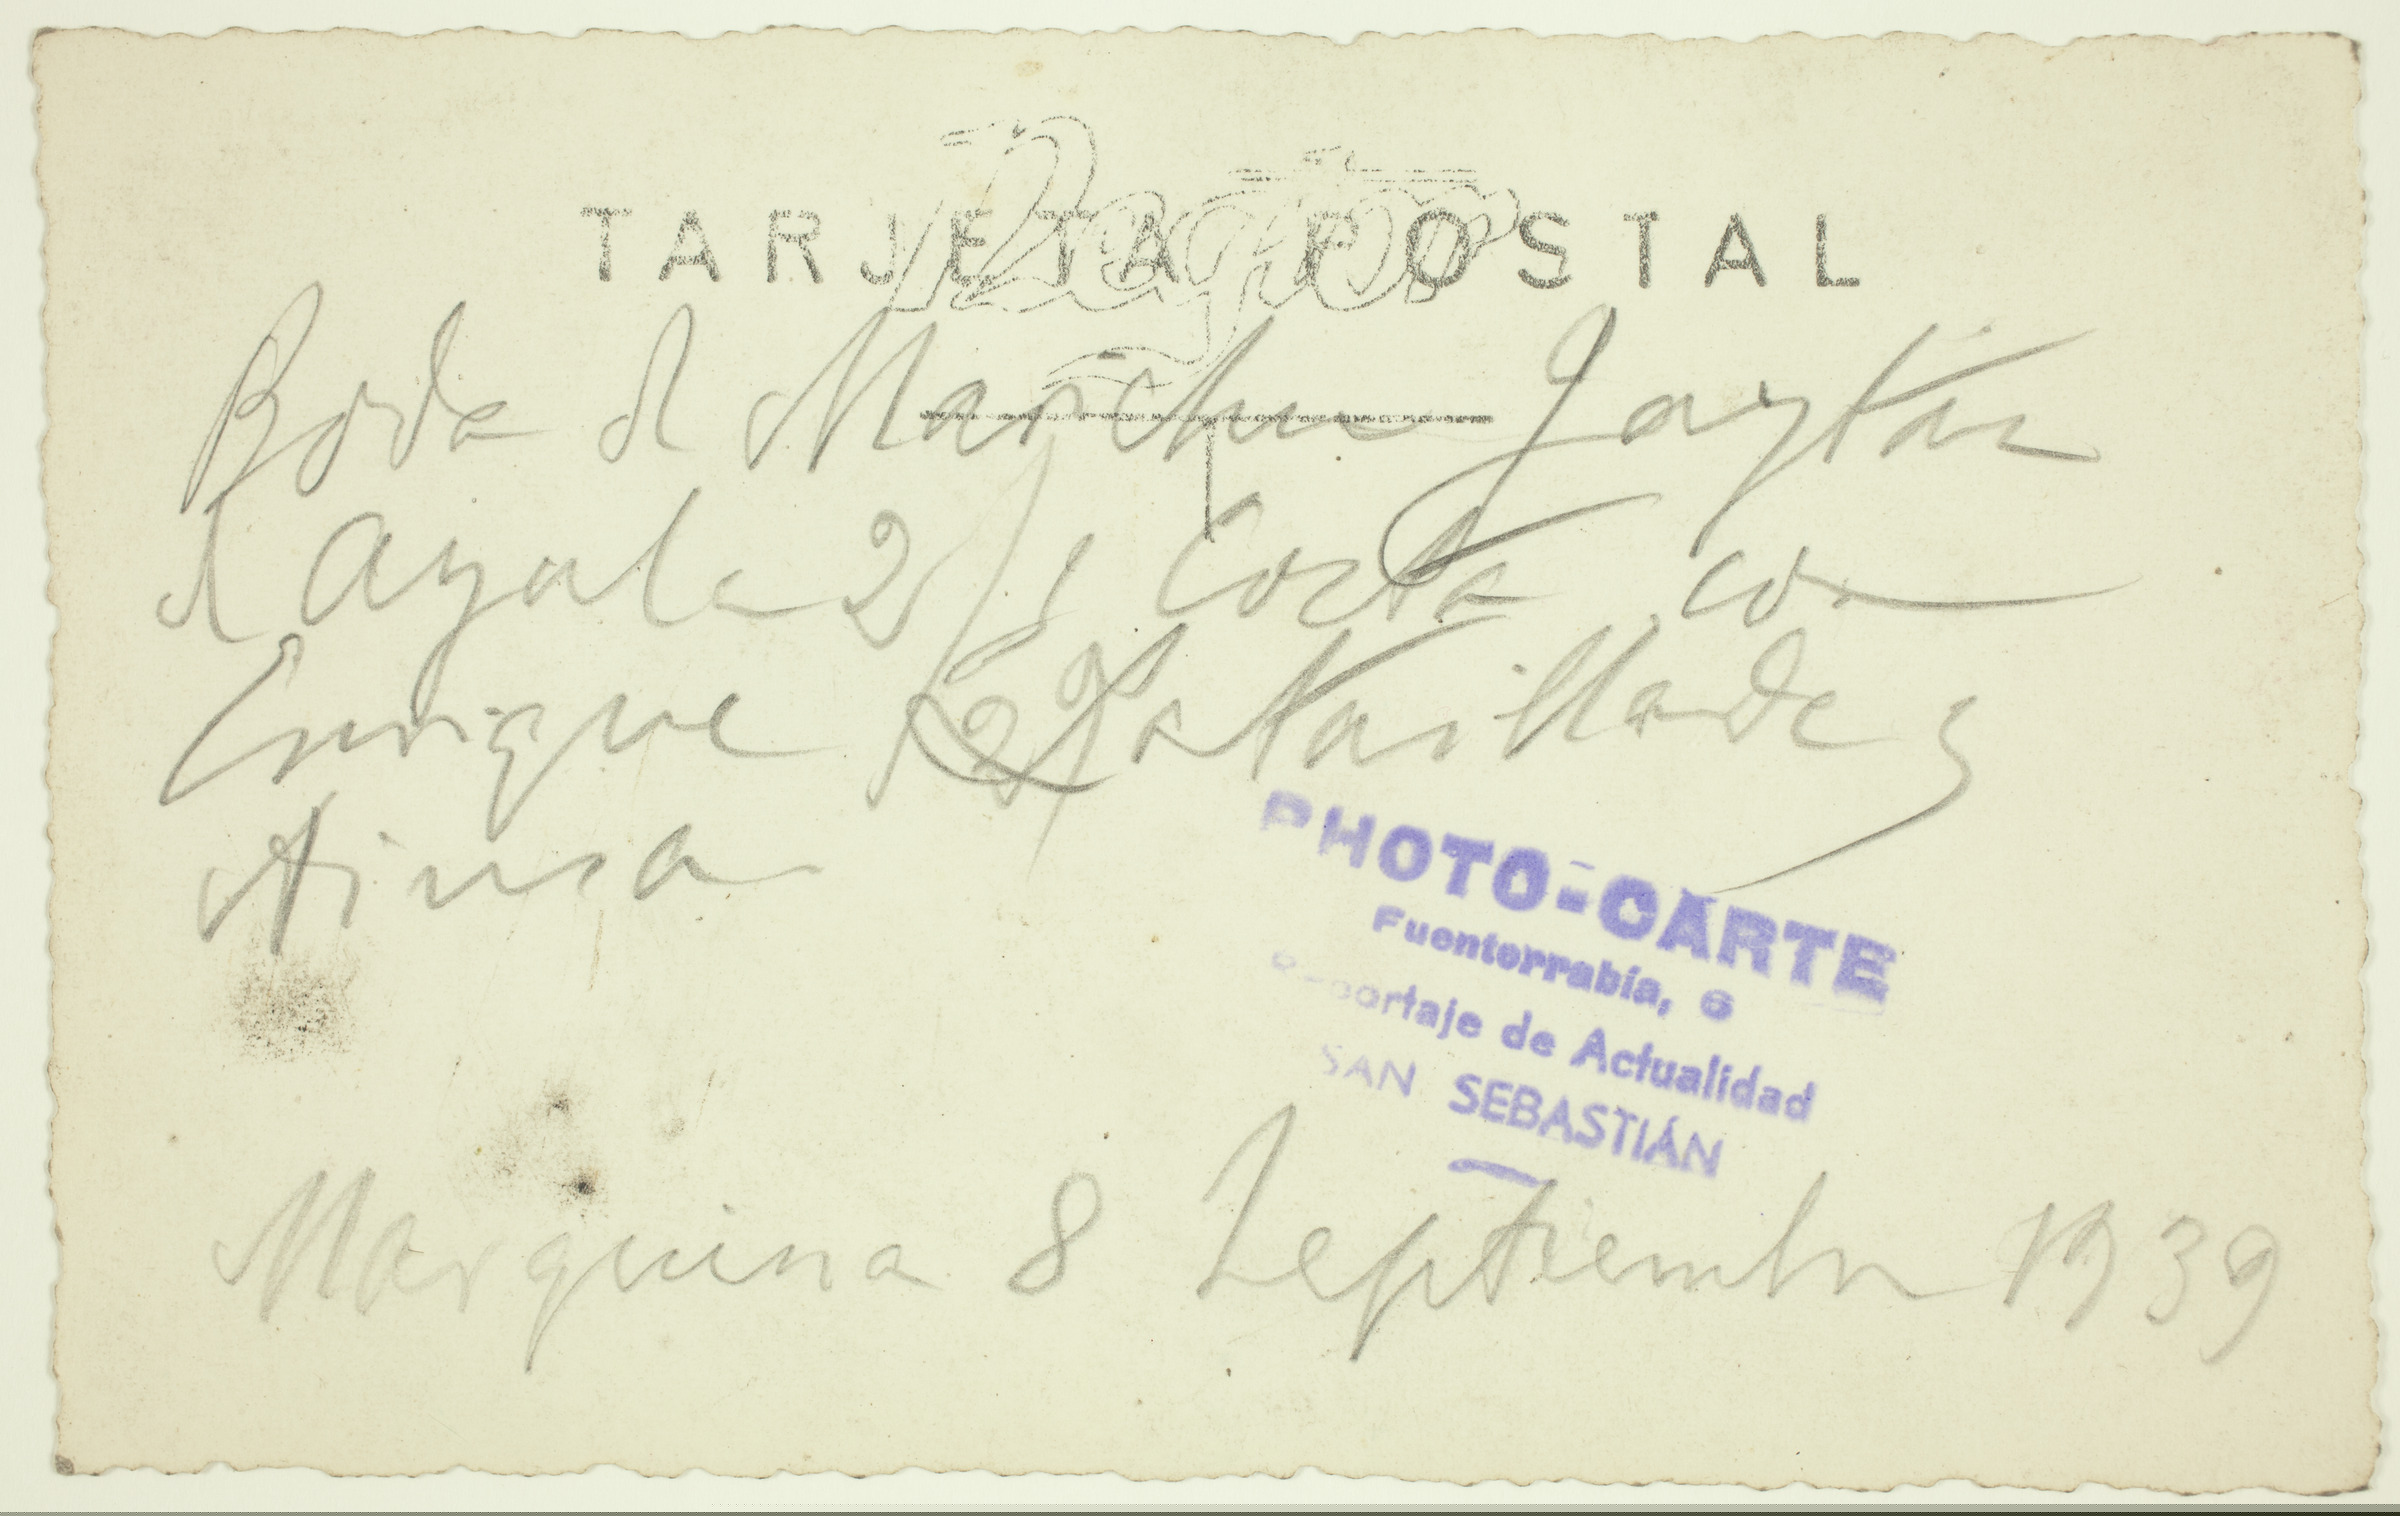 TARJETA POSTAL
Boda d Marichu Gaytán
d Ayala y Costa con
Enrique Lataillade y
Ainsa
PHOTO-CARTE
Fuenterrabía, 6
Reportaje de Actualidad
SAN SEBASTIÁN
Marquina 8 Septiembre 1939